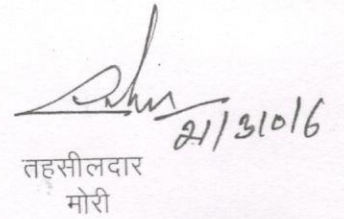 21/3/016
तहसीलदार
मोरी